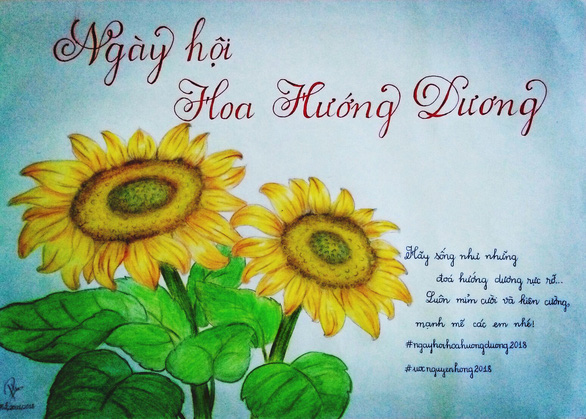 Ngày hội
Hoa Hướng Dương
Hãy sống như những
đoá hướng dương rực rỡ...
Luôn mỉm cười và kiên cường,
mạnh mẽ các em nhé!
#ngayhoihoahuongduong2018
#wxnguyenhong2018